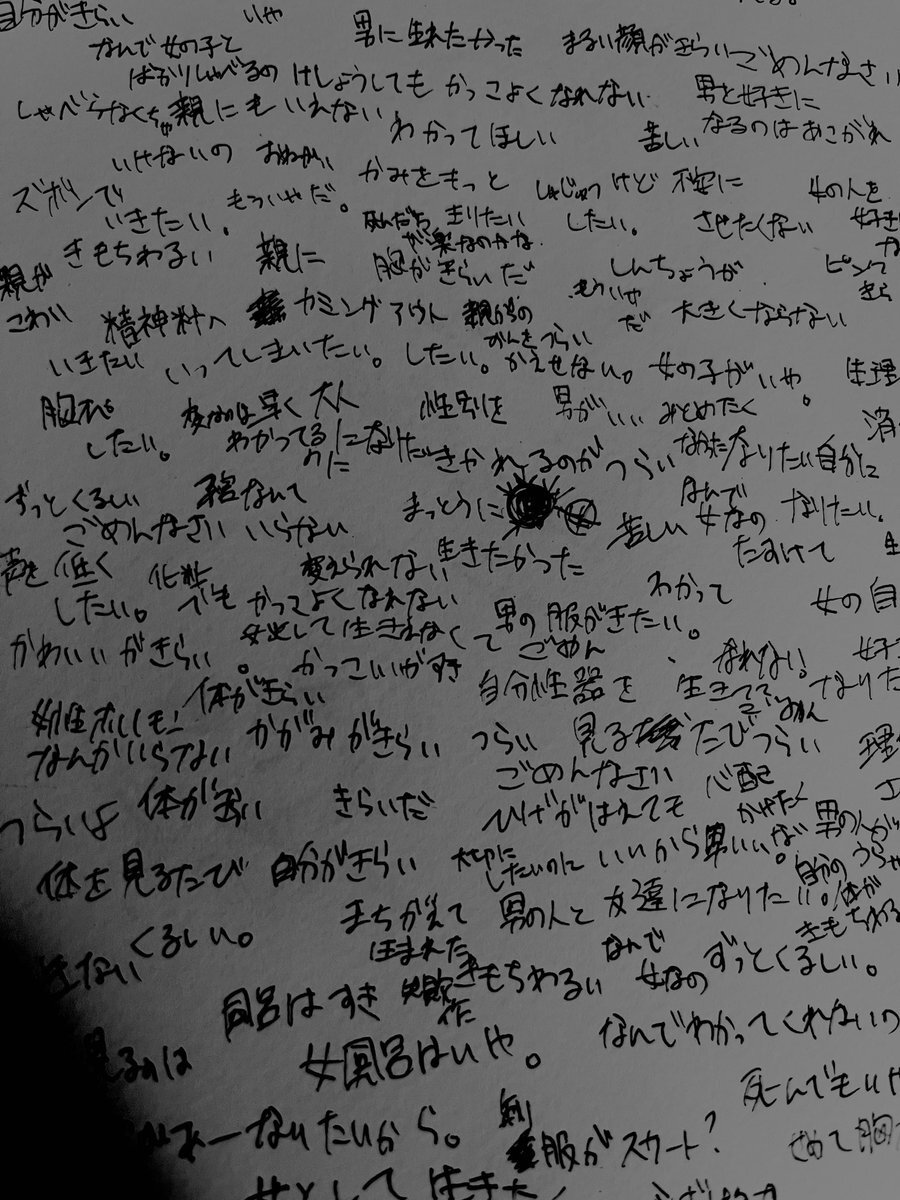 自分がきらい いや
なんで女の子と 男に生れたかった まるい顔がきらい ごめんなさい
ばかりしゃべるの けしょうしても かっこよくなれない 男と好きに
しゃべらなくちゃ 親にもいえない わかってほしい 苦しい なるのはあこがれ
いけないの かみをもっと しゅじゅつ けど 不安に 女の人を
ズボンで いきたい。 もういやだ。 きりたい したい。 させたくない 好き
親が きもちわるい 親に 死んだら が楽なのかな 胸がきらいだ しんちょうが ピンク
こわい 精神科へ カミングアウト 親からの もういや だ 大きくならない きら
いきたい いってしまいたい。 したい。 かえせない。 女の子がいや 生理
胸 変なのは早く 大人 性別を 男がいい みとめたく 。
したい。 わかってる になりた きかれるのが つらい なりたい自分に 消
ずっとくるしい なんて まっとうに なんで
ごめんなさい いらない 苦しい 女なの なりたい。
声を低く 化粧 変えられない 生きたかった たすけて 生
したい。 でも かっこよくなれない わかって
かわいいがきらい 。 女として生きなくて 男の服がきたい。 女の自
かっこいいがすき ごめん なれない。
女性ホルモン 体がきらい 自分性器を 生きてて ごめん なりた
なんかいらない かがみがきらい つらい 見るたびつらい 理
ごめんなさい 心配
つらいよ 体が きらいだ ひげがはえても かけたく
体を見るたび 自分がきらい 大切に したいのに いいから男いいな。 男の人が うらや
まちがえて 男の人と友達になりたい。 自分の 体が
きない くるしい。 生まれた なんで きもちわる
風呂はすき 失敗作 きもちわるい 女なの ずっとくるしい。
見るのは 女風呂はいや。 なんでわかってくれないの
なりたいから。 制服がスカート? 死んでもいい
せめて胸
女として生きた